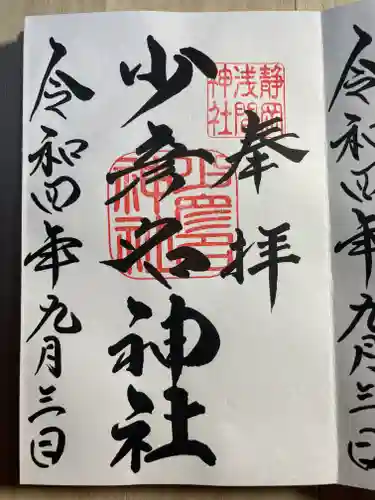 奉拝
静岡
浅間
神社
少彦名神社
令和四年九月三日
令和四年九月三日